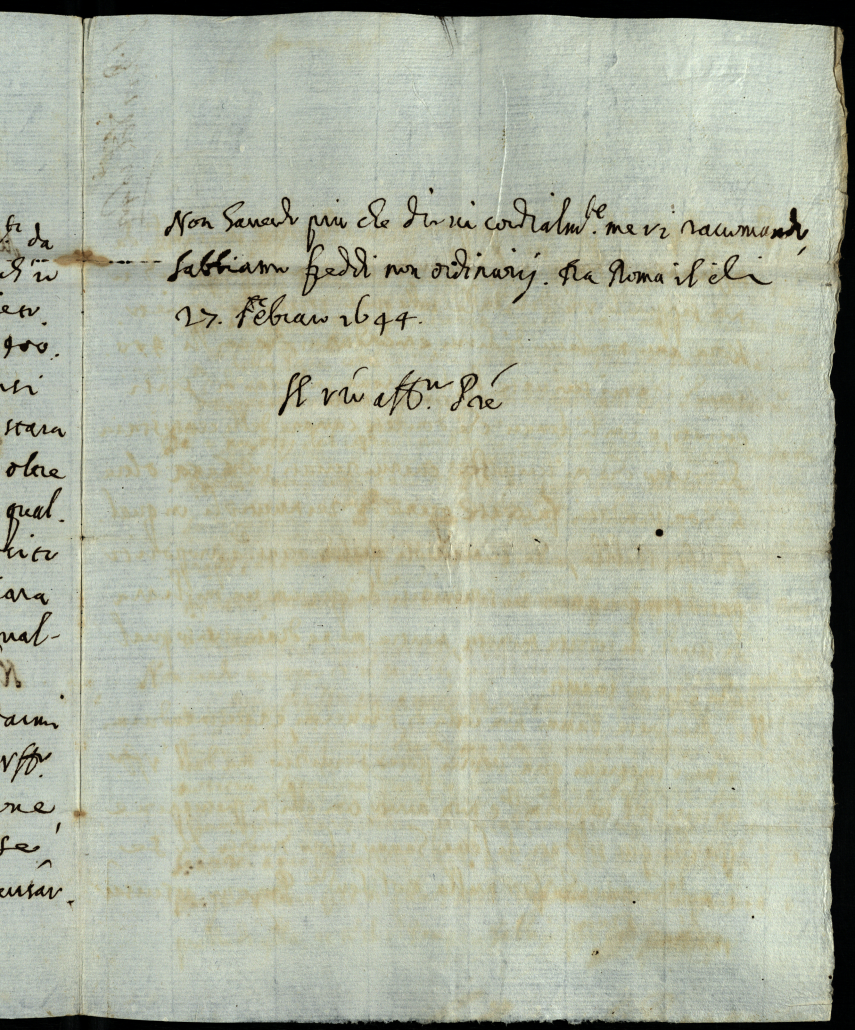 da
400.
stara
oltre
qual.
ara
qual-
ne
se
Non havendo piu che dirvi cordialm.te me vi racumando,
habbiamo freddi non ordinarij. Da Roma il di
27. Febraro 1644.
Il vro aff.mo Pre